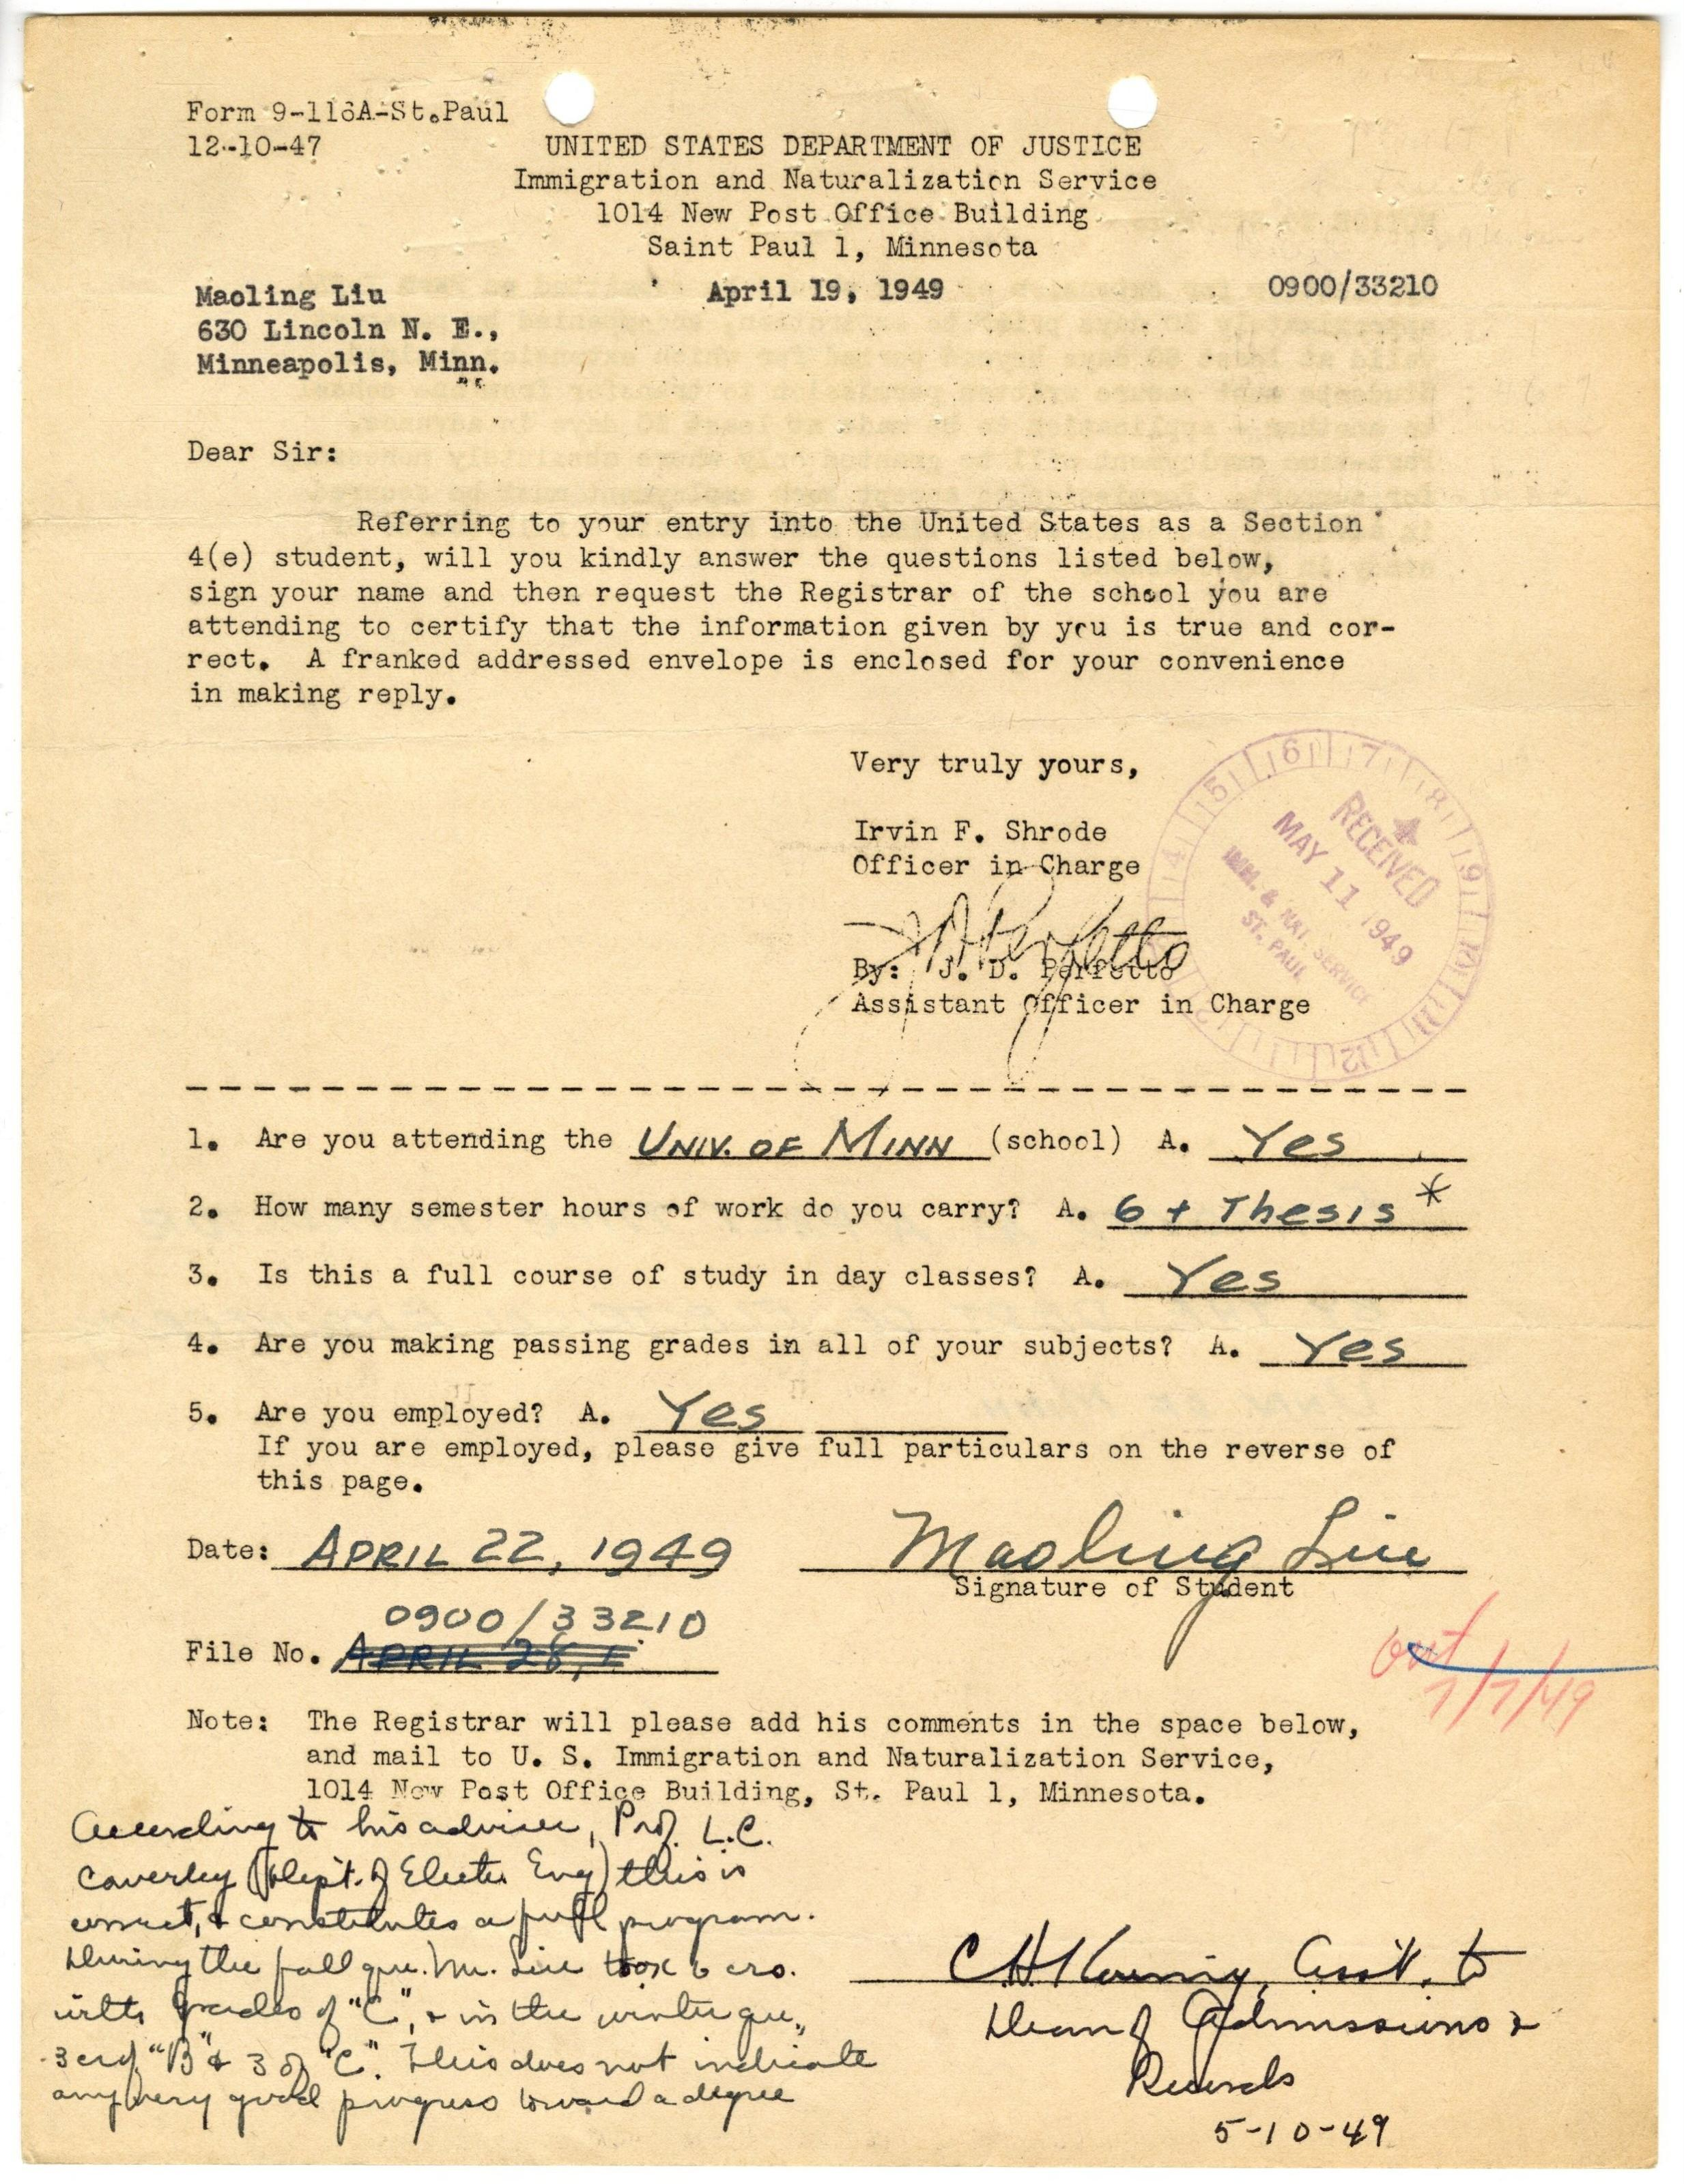 Form 9-116A-St.Paul
12-10-47
UNITED STATES DEPARTMENT OF JUSTICE
Immigration and Naturalization Service
1014 New Post Office Building
Saint Paul 1, Minnesota
Maoling Liu
April 19, 1949
0900/33210
630 Lincoln N. E.,
Minneapolis, Minn.
Dear Sir:
Referring to your entry into the United States as a Section
4(e) student, will you kindly answer the questions listed below,
sign your name and then request the Registrar of the school you are
attending to certify that the information given by you is true and cor-
rect. A franked addressed envelope is enclosed for your convenience
in making reply.
Very truly yours,
Irvin F. Shrode
Officer in Charge
By: J. D. Perfetto
Assistant Officer in Charge
RECEIVED
MAY 11 1949
IMM. & NAT. SERVICE
ST. PAUL
1. Are you attending the UNIV. OF MINN (school) A. Yes
2. How many semester hours of work do you carry? A. 6 + Thesis *
3. Is this a full course of study in day classes? A. Yes
4. Are you making passing grades in all of your subjects? A. Yes
5. Are you employed? A. Yes
If you are employed, please give full particulars on the reverse of
this page.
Date: APRIL 22, 1949
Maoling Liu
Signature of Student
0900/33210
File No. APRIL 28, 1
out
7/7/49
Note: The Registrar will please add his comments in the space below,
and mail to U. S. Immigration and Naturalization Service,
1014 New Post Office Building, St. Paul 1, Minnesota.
According to his adviser, Prof. L.C.
Caverley (Dept. of Electr Eng) this is
correct, & constitutes a full program.
During the fall qu. Mr. Liu took 6 crs.
with grades of "C", & in the winter qu.,
3 cr of "B" & 3 of "C". This does not indicate
any very good progress toward a degree
C H Asst. to
Dean of Admissions &
Records
5-10-49